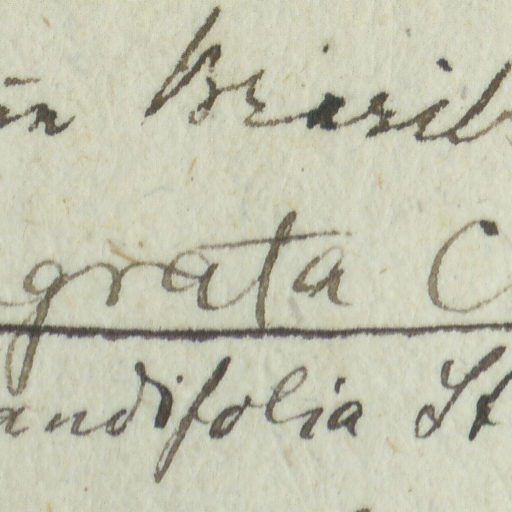 in Brasil
grata C
andifolia St